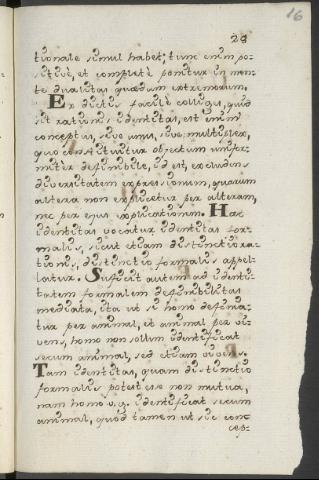 16
23
tionale simul habet; tunc enim po-
sitivè, et completè ponitur in men-
te dualitas quædam extremorum.
Ex dictis facile colligi, quid
sit rationis identitas, est enim
conceptus, sive unus, sive multiplex,
quo constituitur objectum unifor-
miter definibile, id est, excludens
diversitatem expressionum, quarum
altera non explicetur per alteram,
nec per ejus explicationem. Hæc
identitas vocatur identitas for-
malis, sicut etiam distinctio ra-
tionis, distinctio formalis appel-
latur. Suficit autem ad identi-
tatem formalem definibilitas
mediata, ita ut si homo definia-
tur per animal, et animal per vi-
vens, homo non solum identificat
secum animal, sed etiam vivens.
Tam identitas, quam distinctio
formalis potest esse non mutua,
nam homo v.g. identificat secum
animal, quod tamen ut sic conc
cep-